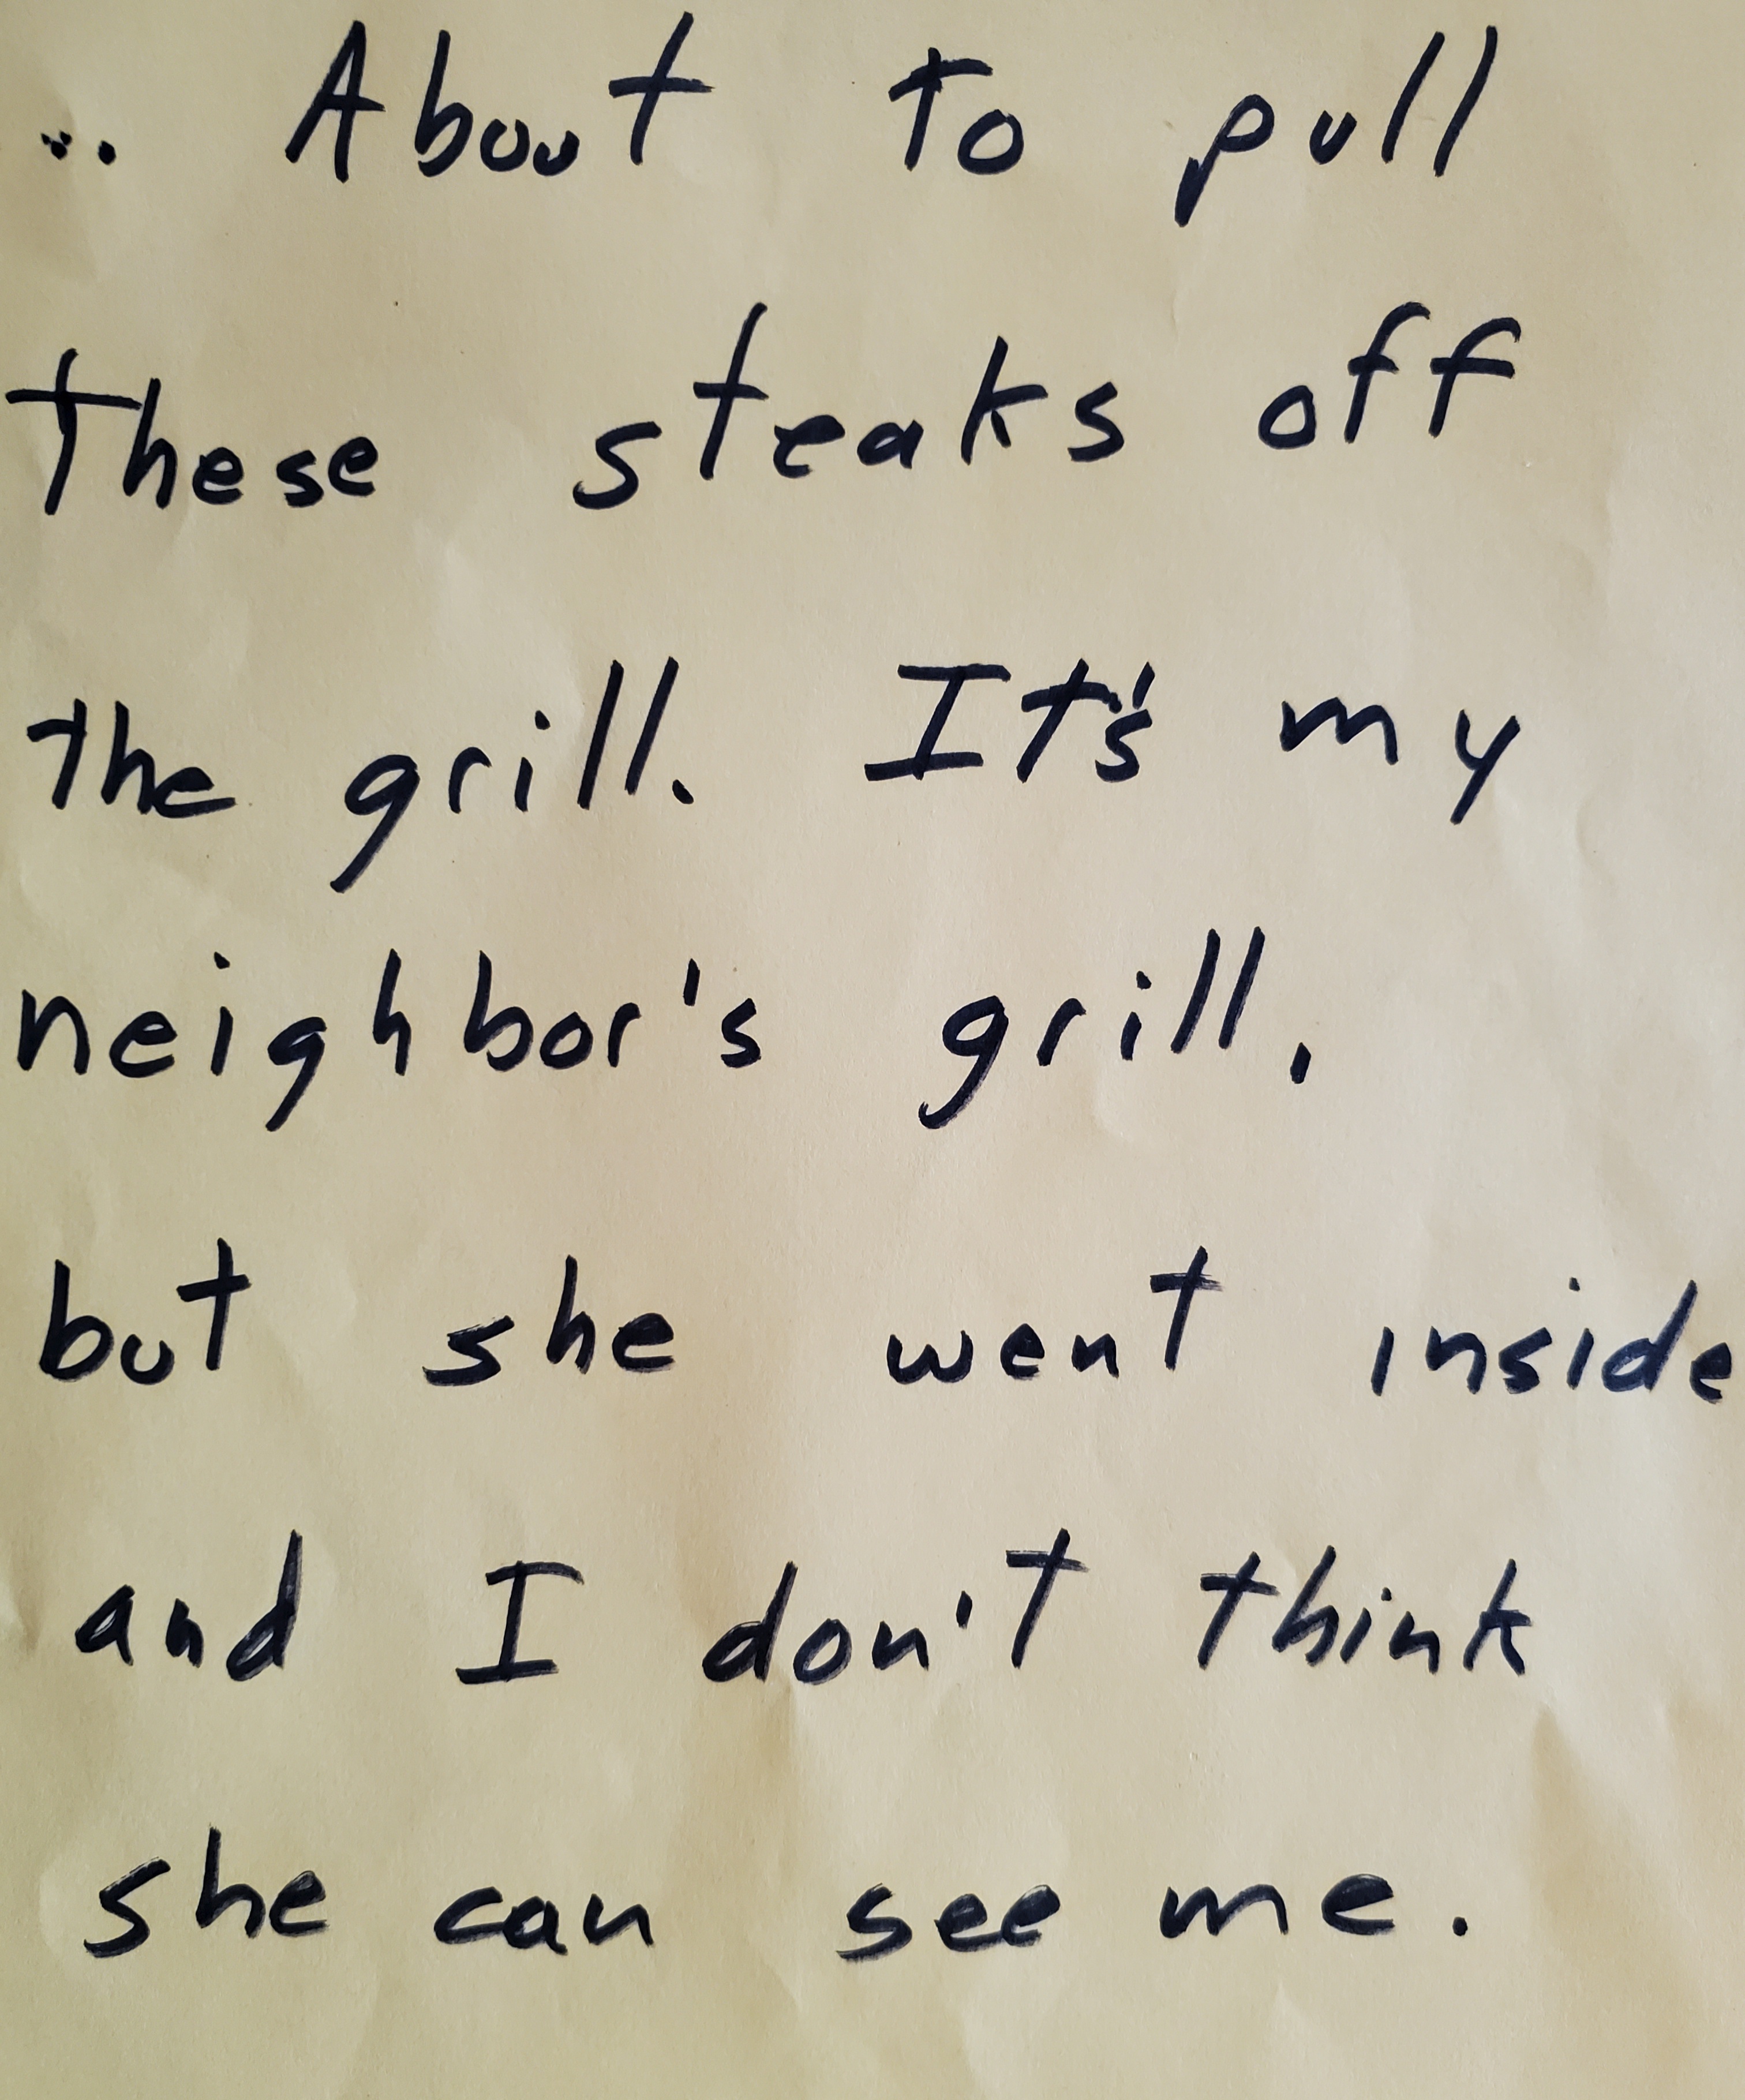 ... About to pull
these steaks off
the grill. It's my
neighbor's grill,
but she went inside
and I don't think
she can see me.